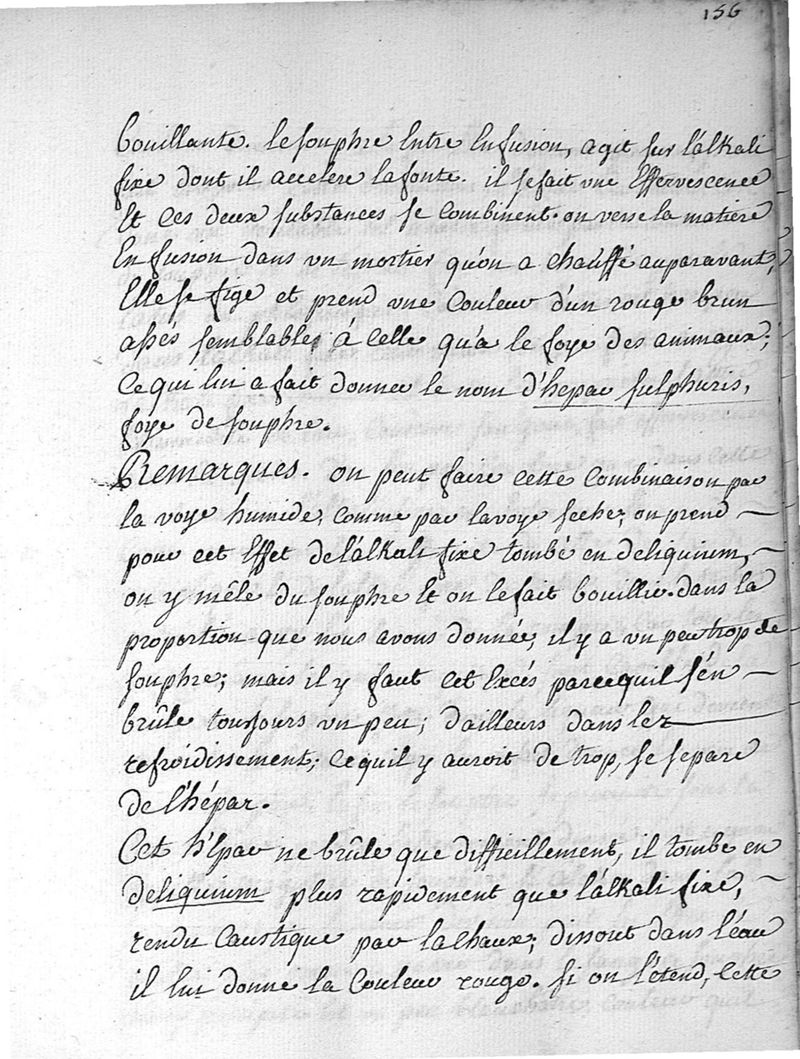 156
bouillante. le souphre Entre En fusion, agit sur l'álkali
fixe dont il accelere la fonte. il se fait vne Effervescence
Et Ces deux substances se Combinent. on verse la matiere
En fusion dans vn mortier qu'on a chauffé auparavant,
Elle se fige et prend vne Couleur d'un rouge brun
assés semblables á Celle qu'a le foye des animaux;
Ce qui lui a fait donner le nom d'hepar sulphuris,
foye de souphre.
Remarques. on peut faire cette Combinaison par
la voye humide, Comme par la voye seche; on prend
pour cet Effet de l'álkali fixe tombé en deliquium,
on y mêle du souphre Et on le fait bouillir. dans la
proportion que nous avons donnée, il y a vn peu trop de
souphre; mais il y faut cet Excés parcequ'il s'én
brûle toujours vn peu; d'ailleurs dans le
refroidissement, Ce qu'il y auroit de trop, se separe
de l'hépar.
Cet hépar ne brûle que difficillement, il tombe en
deliquium plus rapidement que l'álkali fixe,
rendu Caustique par la Chaux; dissout dans l'éau
il lui donne la Couleur rouge. si on l'étend, Cette